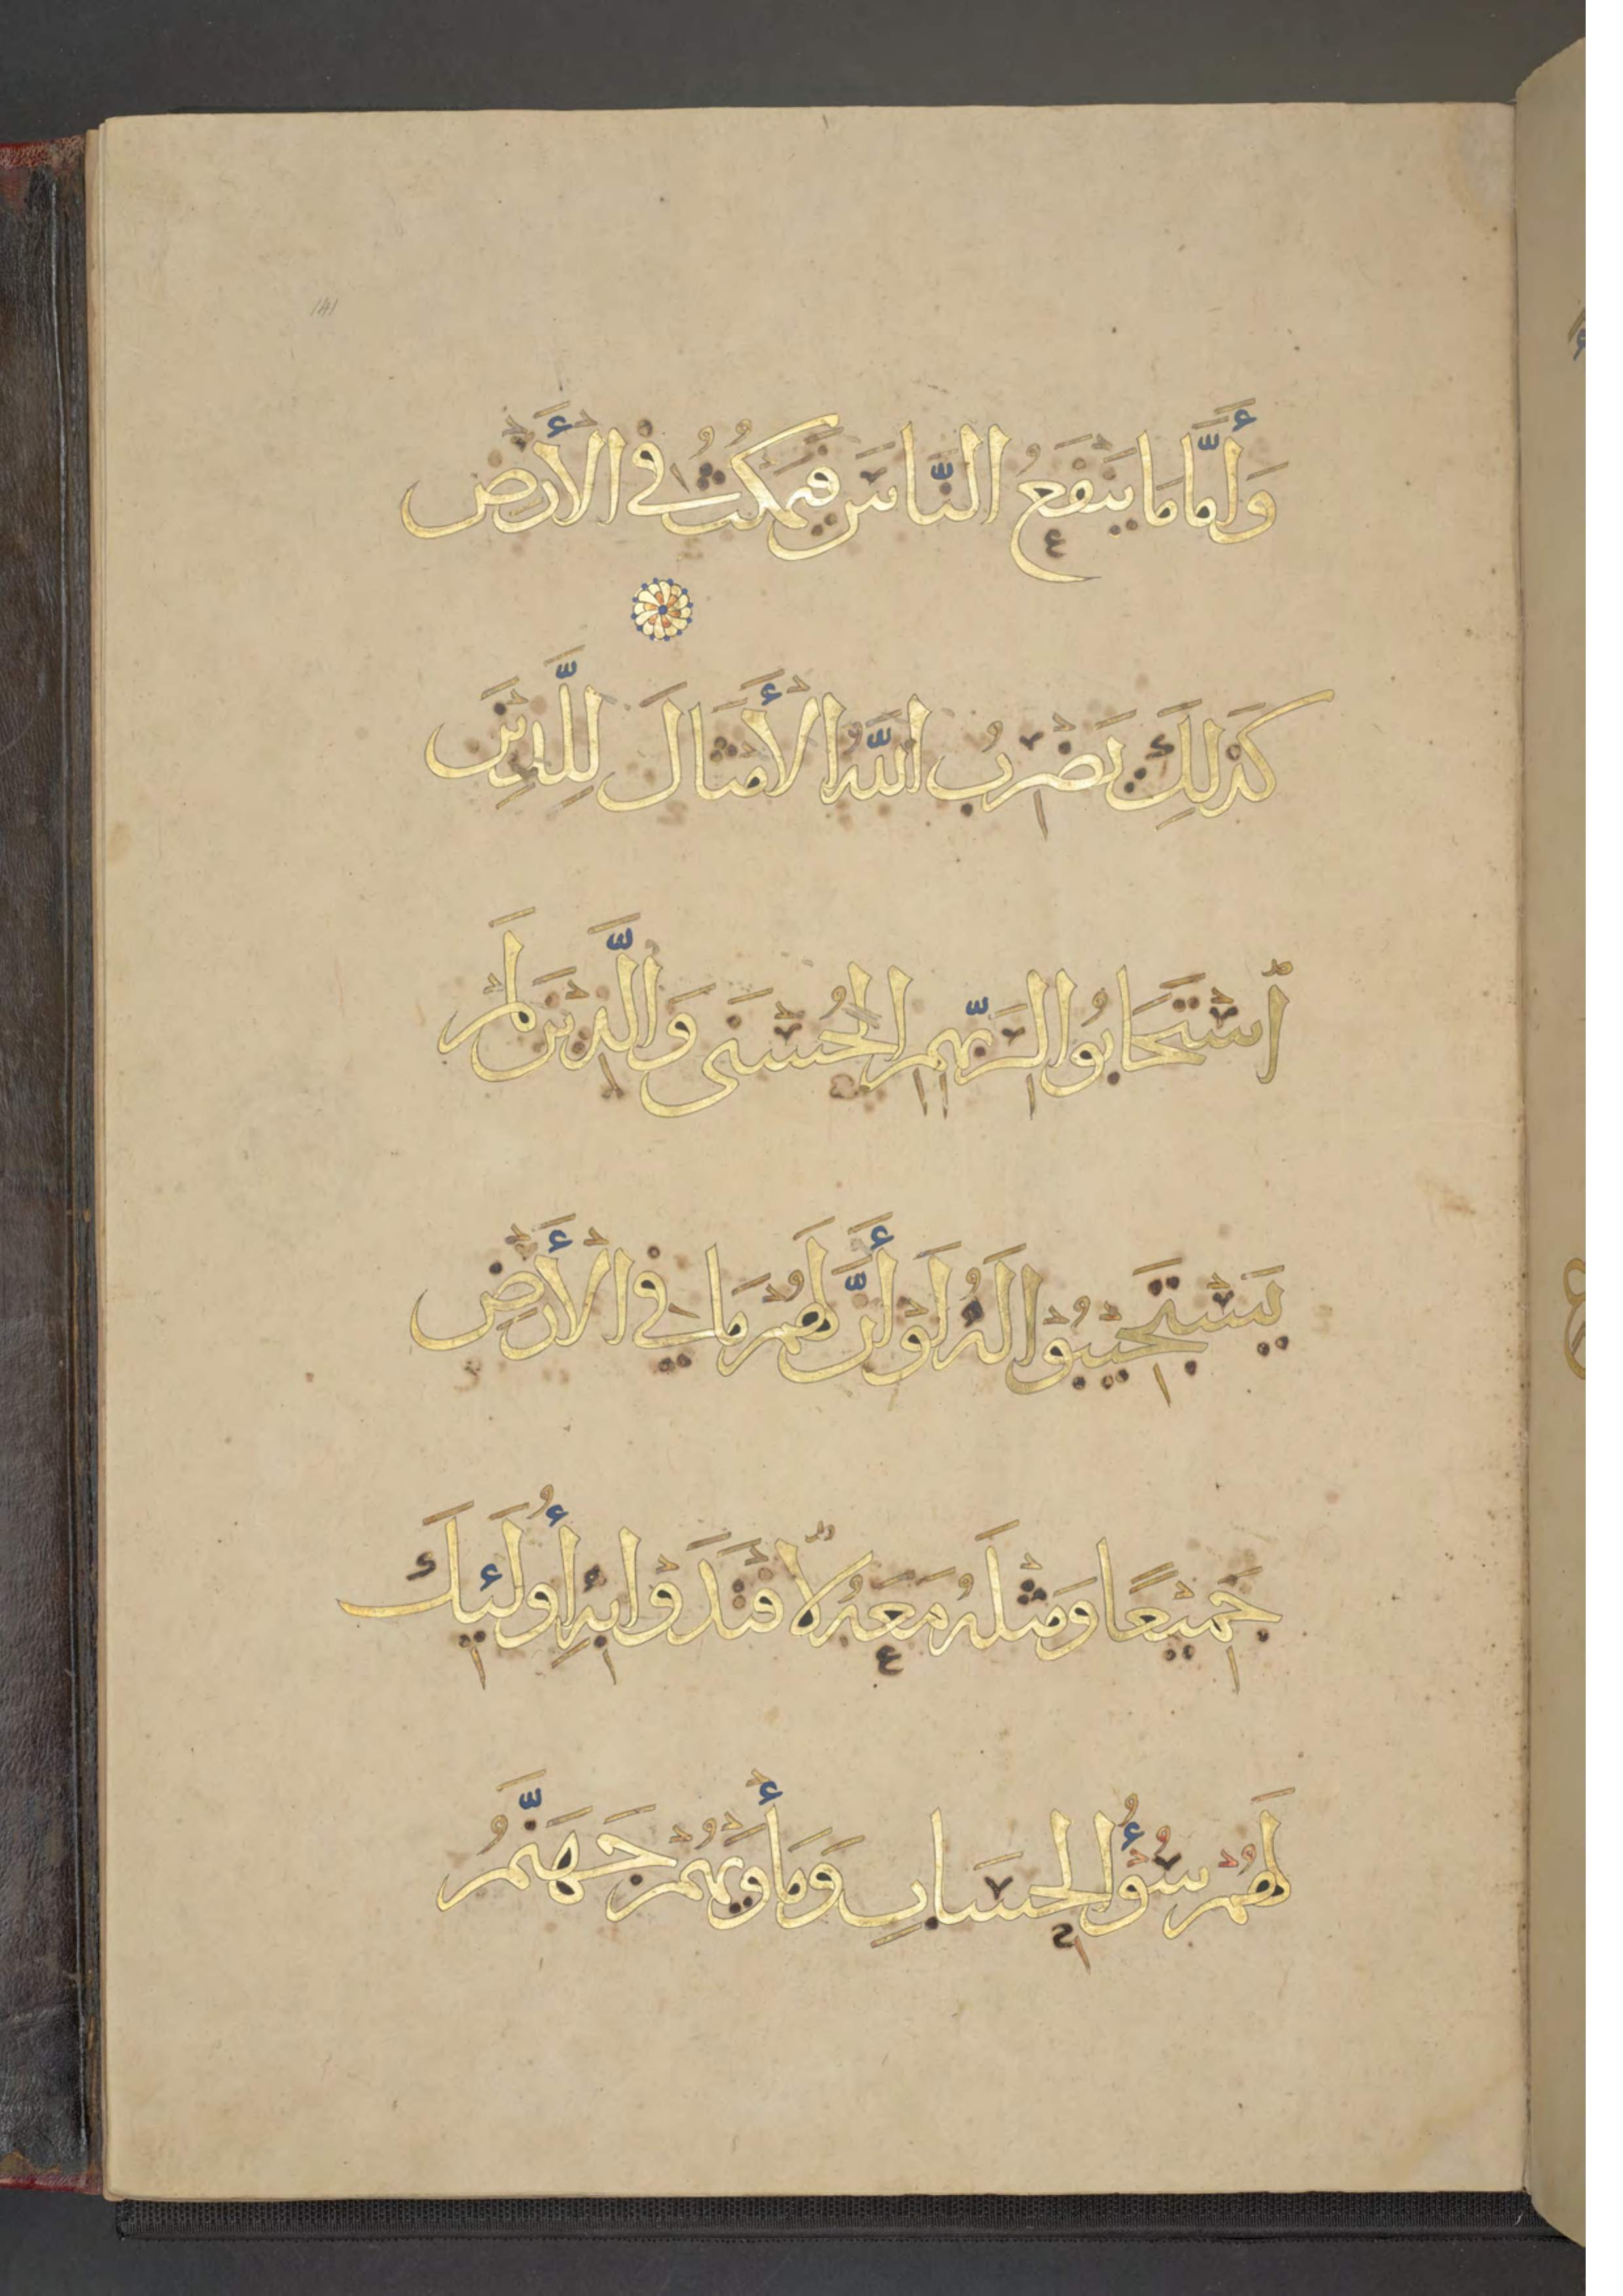 وَأَمَّا مَا يَنْفَعُ النَّاسَ فَيَمْكُثُ فِي الْأَرْضِ
كَذَلِكَ يَضْرِبُ اللَّهُ الْأَمْثَالَ لِلَّذِينَ
اسْتَجَابُوا لِرَبِّهِمِ الْحُسْنَى وَالَّذِينَ لَمْ
يَسْتَجِيبُوْا لَهُ لَوْ أَنَّ لَهُمْ مَا فِي الْأَرْضِ
جَمِيْعًا وَمِثْلَهُ مَعَهُ لَافْتَدَوْا بِهِ أُولَئِكَ
لَهُمْ سُوْءُ الْحِسَابِ وَمَأْوَيهُمْ جَهَنَّمُ